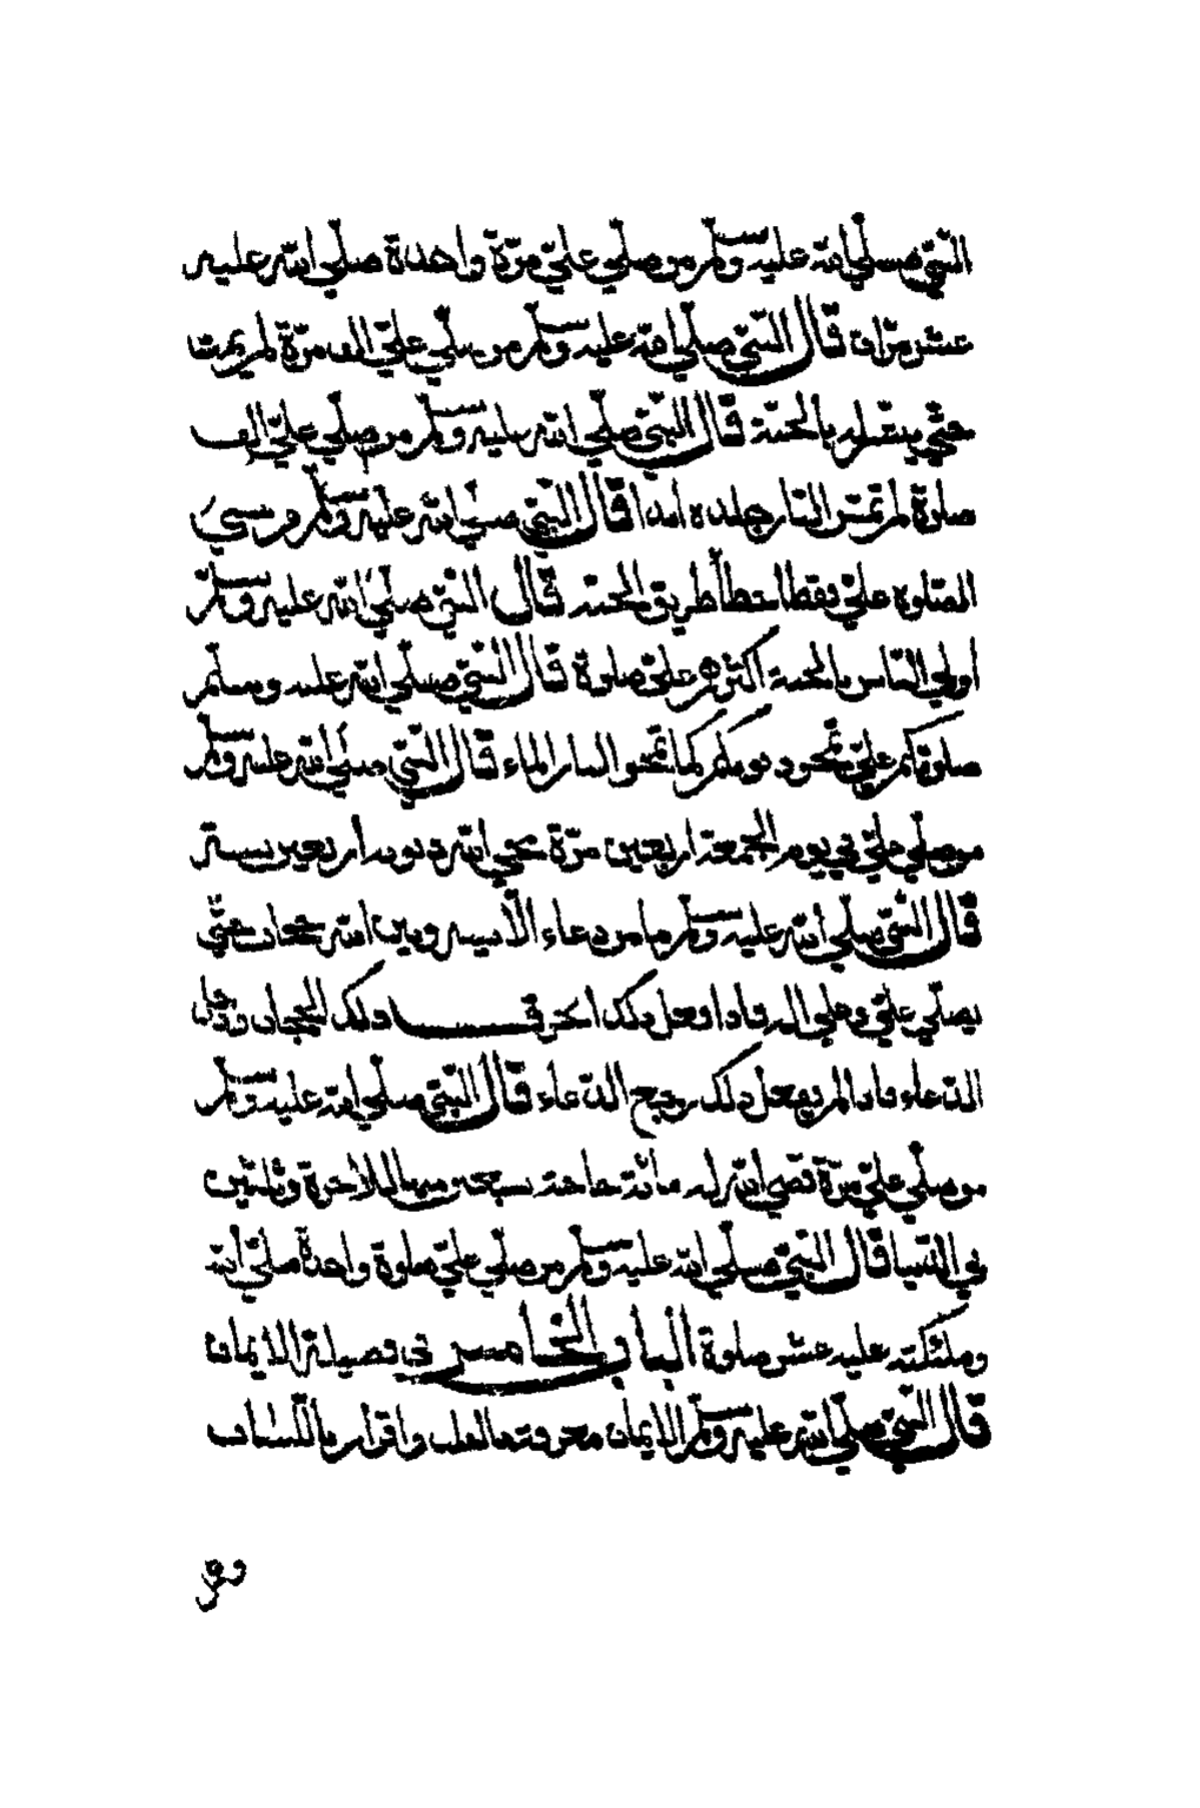 النبي صلي الله عليه وسلم من صلي علي مرة واحدة صلي الله عليه
عشر مرات قال النبي صلي الله عليه وسلم من صلي علي الف مرة لم يمت
حتي يبشر له بالجنة قال النبي صلي الله عليه وسلم من صلي علي الف
صلوة لم تمس النار جلده ابدا قال النبي صلي الله عليه وسلم من نسي
الصلوة علي فقط اخطأ طريق الجنة قال النبي صلي الله عليه وسلم
اولي الناس بالجنة اكثركم علي صلوة قال النبي صلي الله عليه وسلم
صلوتكم علي تمحو ذنوبكم كما تمحو النار الماء قال النبي صلي الله عليه وسلم
من صلي علي في يوم الجمعة اربعين مرة محي الله ذنوبه اربعين سنة
قال النبي صلي الله عليه وسلم ما من دعاء الا بينه وبين الله حجاب حتي
يصلي علي وعلي اله فاذا فعل ذلك انخرق ذلك الحجاب ودخل
الدعاء فاذا لم يفعل ذلك رجع الدعاء قال النبي صلي الله عليه وسلم
من صلي علي مرة قضي الله له مائة حاجة سبعين منها للاخرة وثلثين
في الدنيا قال النبي صلي الله عليه وسلم من صلي علي صلوة واحدة صلي الله
وملئكته عليه عشر صلوة الباب الخامس في فضيلة الايمان
قال النبي صلي الله عليه وسلم الايمان معرفة بالقلب واقرار باللسان